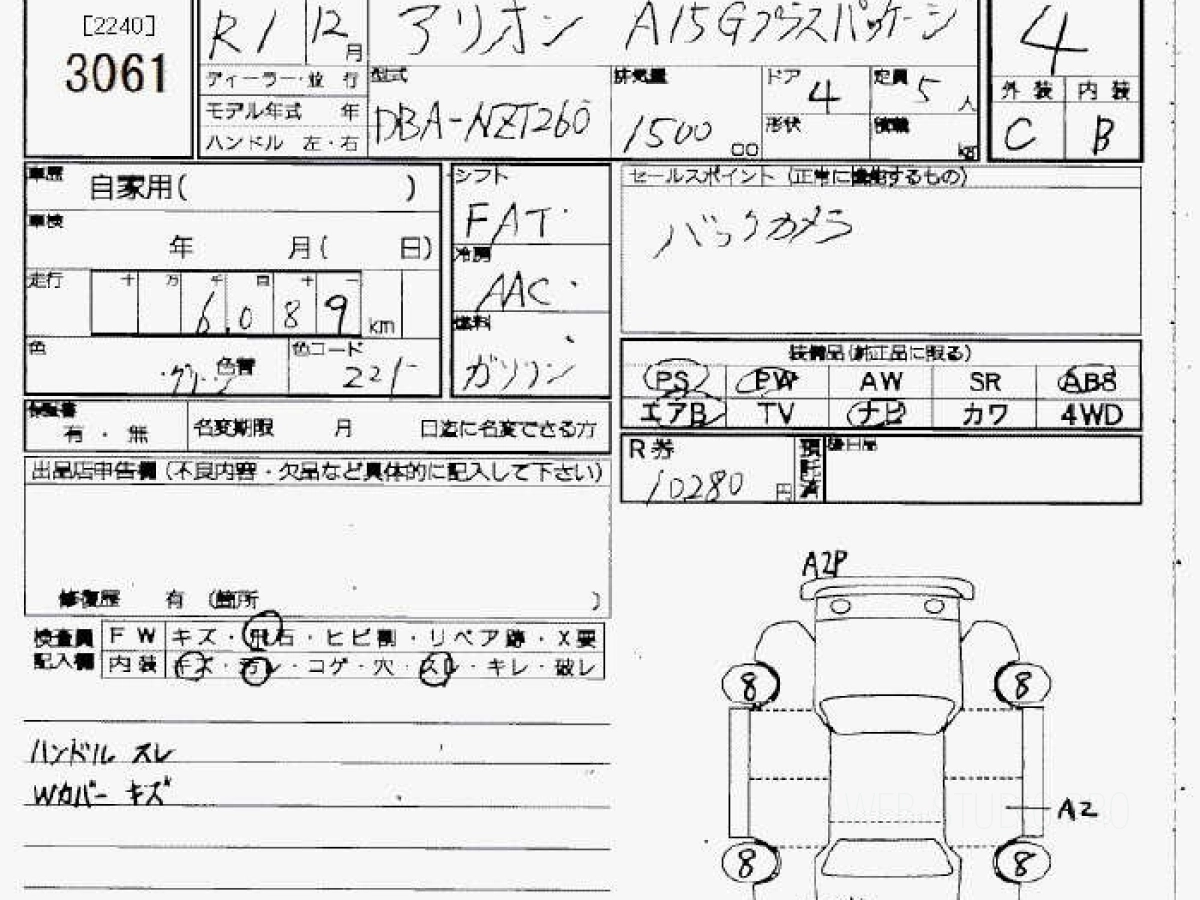 [2240]
3061
R1 12月
ディーラー・並 行
モデル年式 年
ハンドル 左・右
アリオン A15Gプラスパッケージ
型式
DBA-NZT260
排気量
1500 cc
ドア 4
形状
定員 5 人
積載 kg
4
外 装 内 装
C B
車歴 自家用( )
車検 年 月( 日)
走行 十 万 千 百 十 一
6,089 km
色 グリーン 色替
色コード 221
シフト
FAT
冷房
AAC
燃料
ガソリン
セールスポイント (正常に機能するもの)
バックカメラ
装備品(純正品に限る)
PS PW AW SR ABS
エアB TV ナビ カワ 4WD
保証書 有・無
名変期限 月 日迄に名変できる方
R券
10280 円
預託済
後日品
出品店申告欄(不良内容・欠品など具体的に記入して下さい)
修復歴 有 (箇所 )
検査員記入欄
F W キズ・飛石・ヒビ割・リペア跡・X要
内 装 キズ・汚レ・コゲ・穴・スレ・キレ・破レ
ハンドル スレ
Wカバー キズ
A2P
8 8
A2
8 8